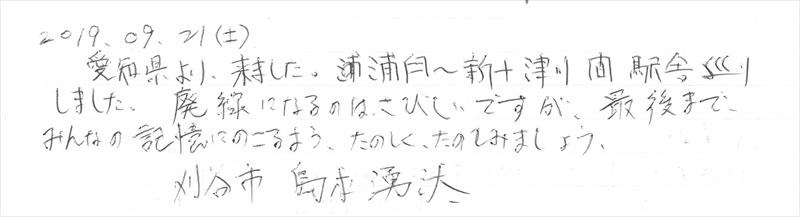 2019.09.21(土)
愛知県より、来ました。浦臼〜新十津川間 駅舎巡り
しました。廃線になるのは、さびしいですが、最後まで、
みんなの記憶にのこるよう、たのしく、たのしみましょう、
刈谷市